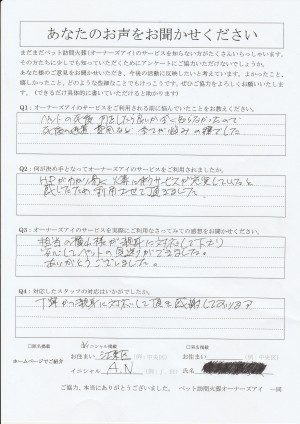 あなたのお声をお聞かせください
まだまだペット訪問火葬(オーナーズアイ)のサービスを知らない方がたくさんいらっしゃいます。
その方たちに少しでも知っていただくためにアンケートにご協力いただけないでしょうか。
あなた様のご意見をお聞かせいただき、今後の活動に反映したいと考えています。よかったこと、
嬉しかったこと、どのような些細なことでもけっこうです。ぜひご協力をよろしくお願いいたしま
す。(できるだけ具体的に書いていただけると助かります)
Q1：オーナーズアイのサービスをご利用される前に悩んでいたことをお教えください。
ペットの死後 何をしたら良いか全く知らなかったので
死後の処置 費用など 全てが悩みの種でした
Q2：何が決め手となってオーナーズアイのサービスをご利用されましたか。
HPがわかり易く 火葬に伴うサービスが充実していると
感じたため利用させて頂きました。
Q3：オーナーズアイのサービスを実際にご利用なさってみての感想をお聞かせください。
担当の横山様が親身に対応して下さり
安心してペットの見送りができました。
ありがとうございました。
Q4：対応したスタッフの対応はいかがでしたか。
丁寧かつ親身に対応して頂き感謝しております
□イニシャル掲載
□実名掲載
ホームページでご紹介
お住まい 江東区 (例：中央区)
お住まい (例：中央区)
イニシャル A.N (例：J.H)
氏名
ご協力、本当にありがとうございました。 ペット訪問火葬オーナーズアイ 一同